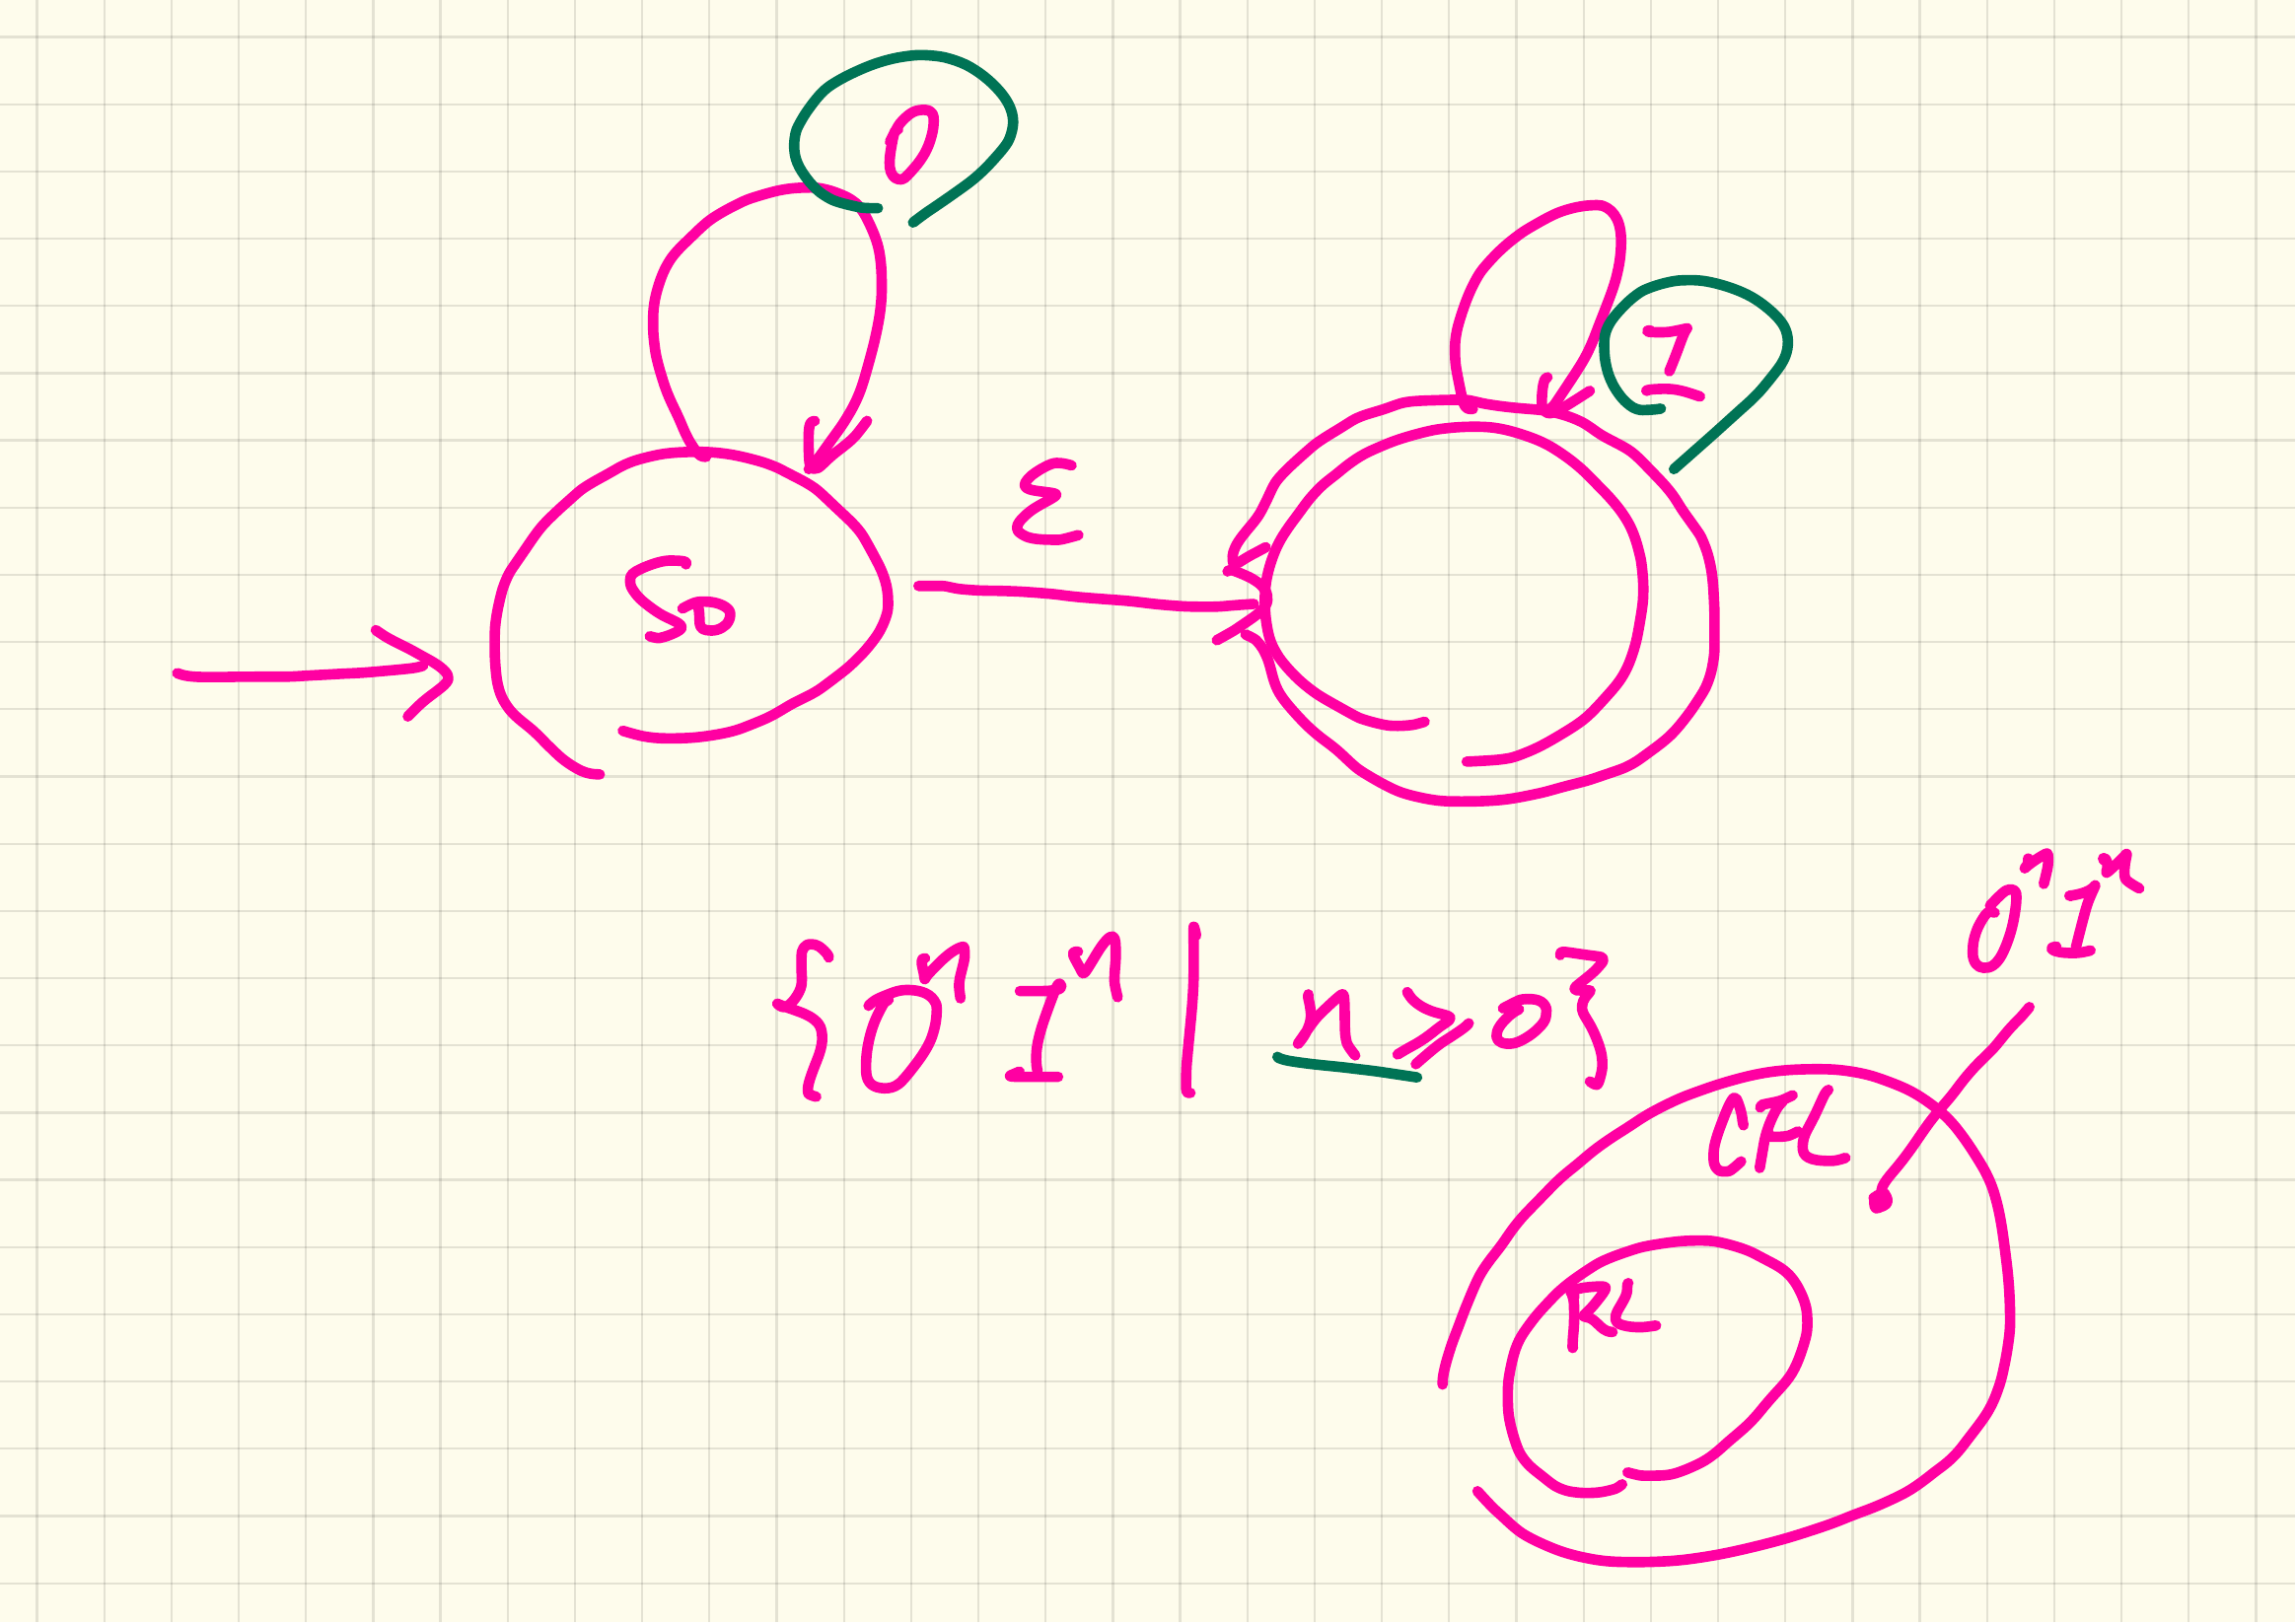 0
1
ε
S0
0ⁿ1ⁿ
{0ⁿ1ⁿ | n≥0}
CFL
RL